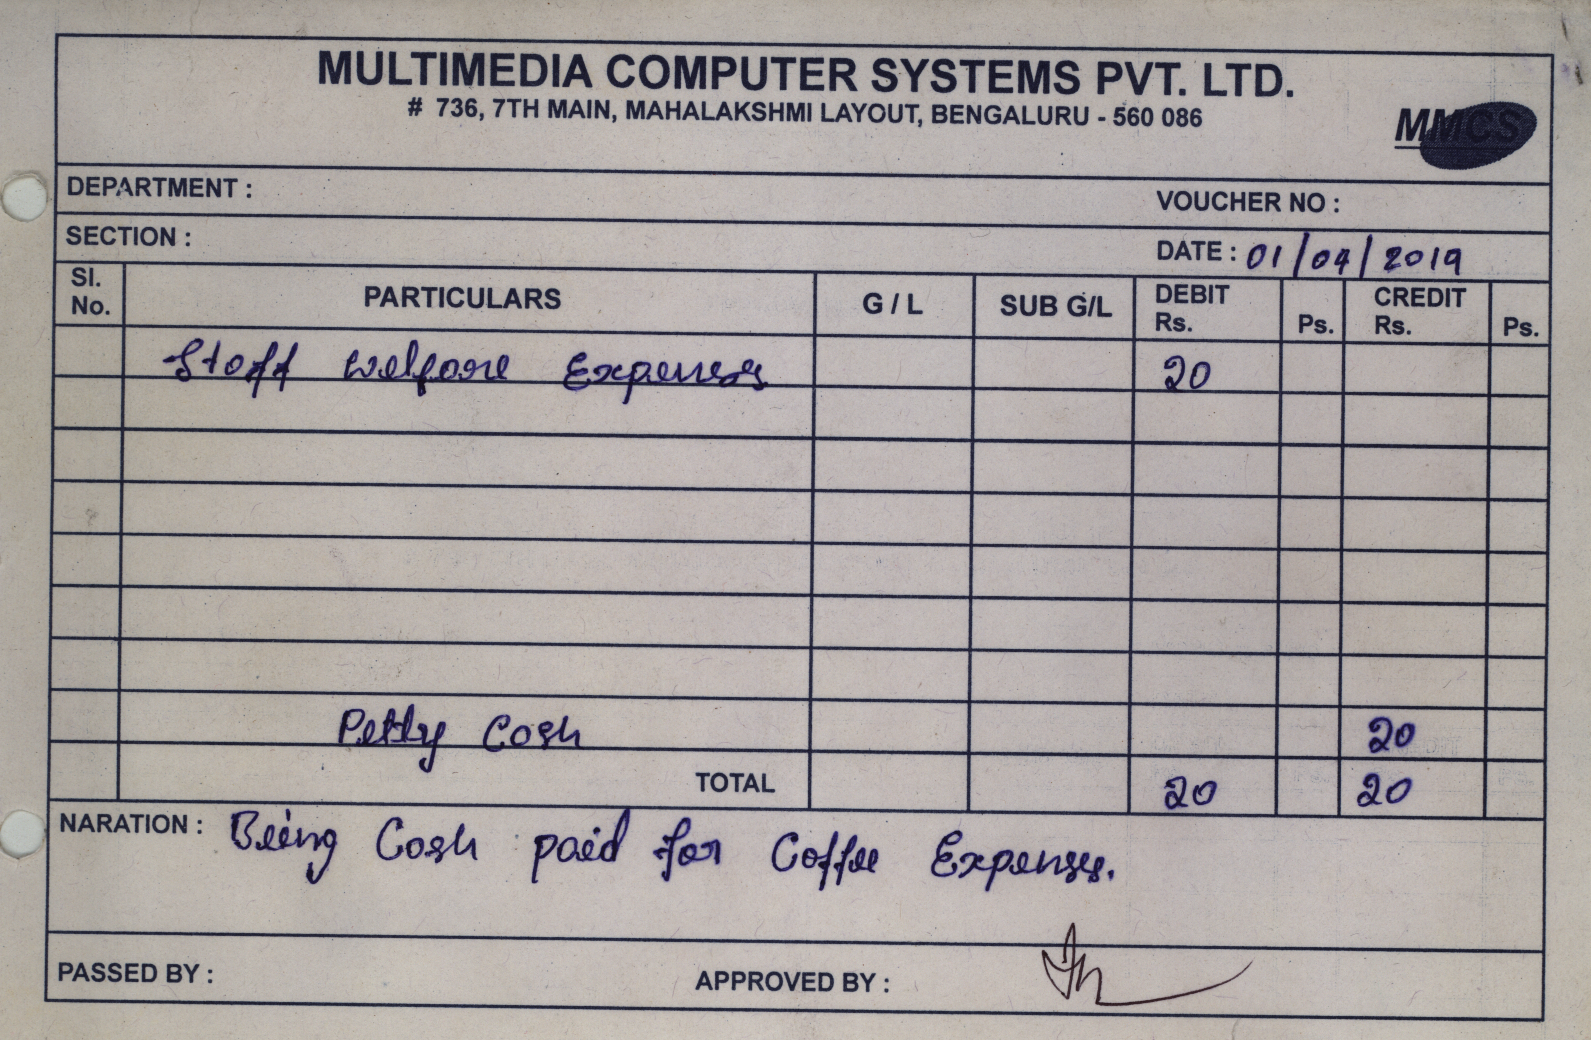 MULTIMEDIA COMPUTER SYSTEMS PVT. LTD.
# 736, 7TH MAIN, MAHALAKSHMI LAYOUT, BENGALURU - 560 086
MMCS
DEPARTMENT :
VOUCHER NO :
SECTION :
DATE : 01/04/2019
Sl. No. PARTICULARS G / L SUB G/L DEBIT Rs. Ps. CREDIT Rs. Ps.
Staff welfare Expenses 20
Petty Cash 20
TOTAL 20 20
NARATION : Being Cash paid for Coffee Expenses.
PASSED BY : APPROVED BY :